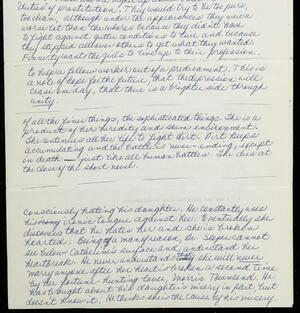 duties of prostitution. They would try to be too pure,
too clean, although under the appearances they were
worse let than the whores because they didn't have
to fight against gutter conditions to live and because
they stopped all over others to get what they wanted.
Finnity want the girls to line up to their profession.
to helpers, fellow workers out of a predicament. This is
a note of hope for the future, that depression will
cease one day, that there is a brighter side through
unity.
of all the finer things, the sophisticated things. She is a
product of her heredity and slum environment.
She continues all her life to fight dirt. Dirt keeps
accumulating and the battle is never-ending, except
in death — just like all human battles. She dies at
the close of the short novel.
consciously hating his daughter. He constantly uses
his ironic tongue against her. Eventually she
discovers that he hates her and she is broken
hearted. Being of a man of reason, Dr. Sloper cannot
see below Catherine's surface and understand her
heartbreak. He never understands that she will never
marry anyone after her heart is broken a second time
by her fortune-hunting lover Morris Townsend. He
has brought about his daughter's misery in part, but
doesn't know it. He thinks she is the cause of his misery.